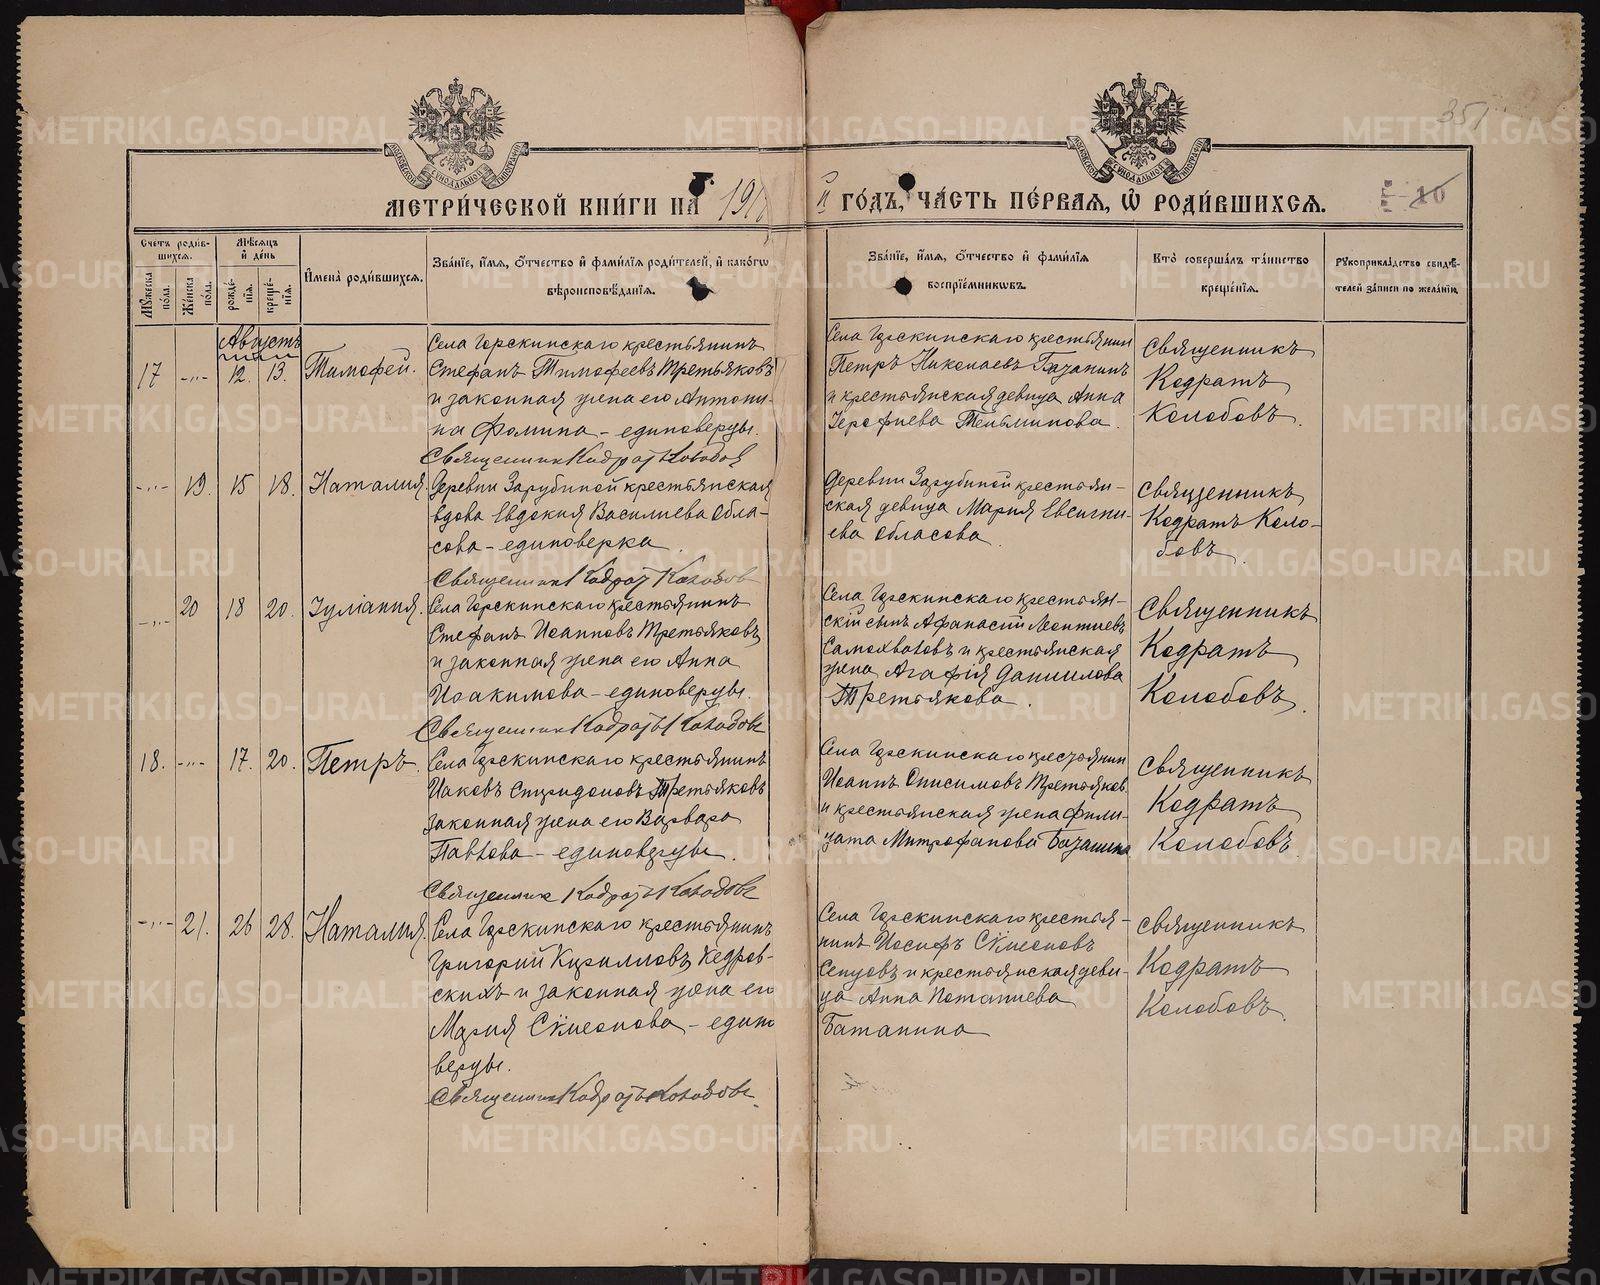 351
МЕТРИ́ЧЕСКОЙ КНИ́ГИ НА 191
ГО́ДЪ, ЧА́СТЬ ПЕ́РВАЯ, Ѡ РОДИ́ВШИХСЯ.
10
Сче́тъ роди́вшихся.
Мѣ́сяцъ и де́нь
Му́жеска по́ла.
Же́нска по́ла.
рожде́нія.
креще́нія.
Имена́ роди́вшихся.
Зва́ніе, и́мя, о́тчество и фами́лія роди́телей, и како́гѡ
вѣроисповѣ́данія.
Зва́ніе, и́мя, о́тчество и фами́лія
воспріе́мникѡвъ.
Кто̀ соверша́лъ та́инство
креще́нія.
Рукоприкла́дство свидѣ́-
телей за́писи по жела́нію.
Августъ
17 -"- 12. 13. Тимофей.
Села Горскинскаго крестьянинъ
Стефанъ Тимофеевъ Третьяковъ
и законная жена его Антони-
на Фомина - единоверцы.
Священник Кодрат Колобов
Села Горскинскаго крестьянин
Петръ Николаевъ Базанинъ
и крестьянская девица Анна
Ерофиева Тельминова.
Священникъ
Кодратъ
Колобовъ.
-"- 19. 15 18. Наталия.
Деревни Зарубиной крестьянская
вдова Евдокия Василиева Обла-
сова - единоверка.
Священник Кодрат Колобов
Деревни Зарубиной крестьян-
ская девица Мария Евсигни-
ева Обласова.
Священникъ
Кодратъ Коло-
бовъ.
-"- 20 18 20. Иулиания.
Села Горскинскаго крестьянинъ
Стефанъ Иоанновъ Третьяковъ
и законная жена его Анна
Иоакимова - единоверцы.
Священник Кодратъ Колобовъ
Села Горскинскаго крестьян-
скій сынъ Афанасій Леонтиевъ
Самохваловъ и крестьянская
жена Агафія Даниилова
Третьякова.
Священникъ
Кодратъ
Колобовъ.
18. -"- 17. 20. Петръ.
Села Горскинскаго крестьянинъ
Иаковъ Спиридоновъ Третьяковъ
законная жена его Варвара
Павлова - единоверцы.
Священник Кодратъ Колобовъ
Села Горскинскаго крестьянин
Иоаннъ Онисимовъ Третьяков
и крестьянская жена Фили-
цата Митрофанова Базанина
Священникъ
Кодратъ
Колобовъ.
-"- 21. 26 28. Наталия.
Села Горскинскаго крестьянинъ
Григорий Кириллов Кедров-
скихъ и законная жена его
Мария Симеонова - едино
верцы.
Священник Кодратъ Колобовъ.
Села Горскинскаго крестья-
нинъ Иосифъ Симеоновъ
и крестьянская деви-
ца Анна Потапиева
Батанина
Священникъ
Кодратъ
Колобовъ.
METRIKI.GASO-URAL.RU